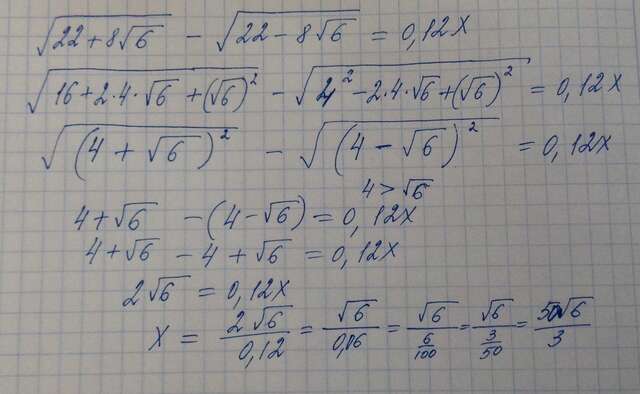 √(22+8√6) − √(22−8√6) = 0,12x
√(16+2·4·√6+(√6)²) − √(4²−2·4·√6+(√6)²) = 0,12x
√((4+√6)²) − √((4−√6)²) = 0,12x
4>√6
4+√6 −(4−√6) = 0,12x
4+√6 −4+√6 = 0,12x
2√6 = 0,12x
x = 2√6/0,12 = √6/0,06 = √6/(6/100) = √6/(3/50) = 50√6/3